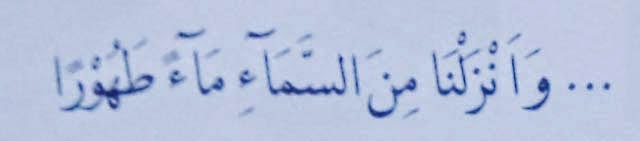 ... وَاَنْزَلْنَا مِنَ السَّمَآءِ مَآءً طَهُوْرًا